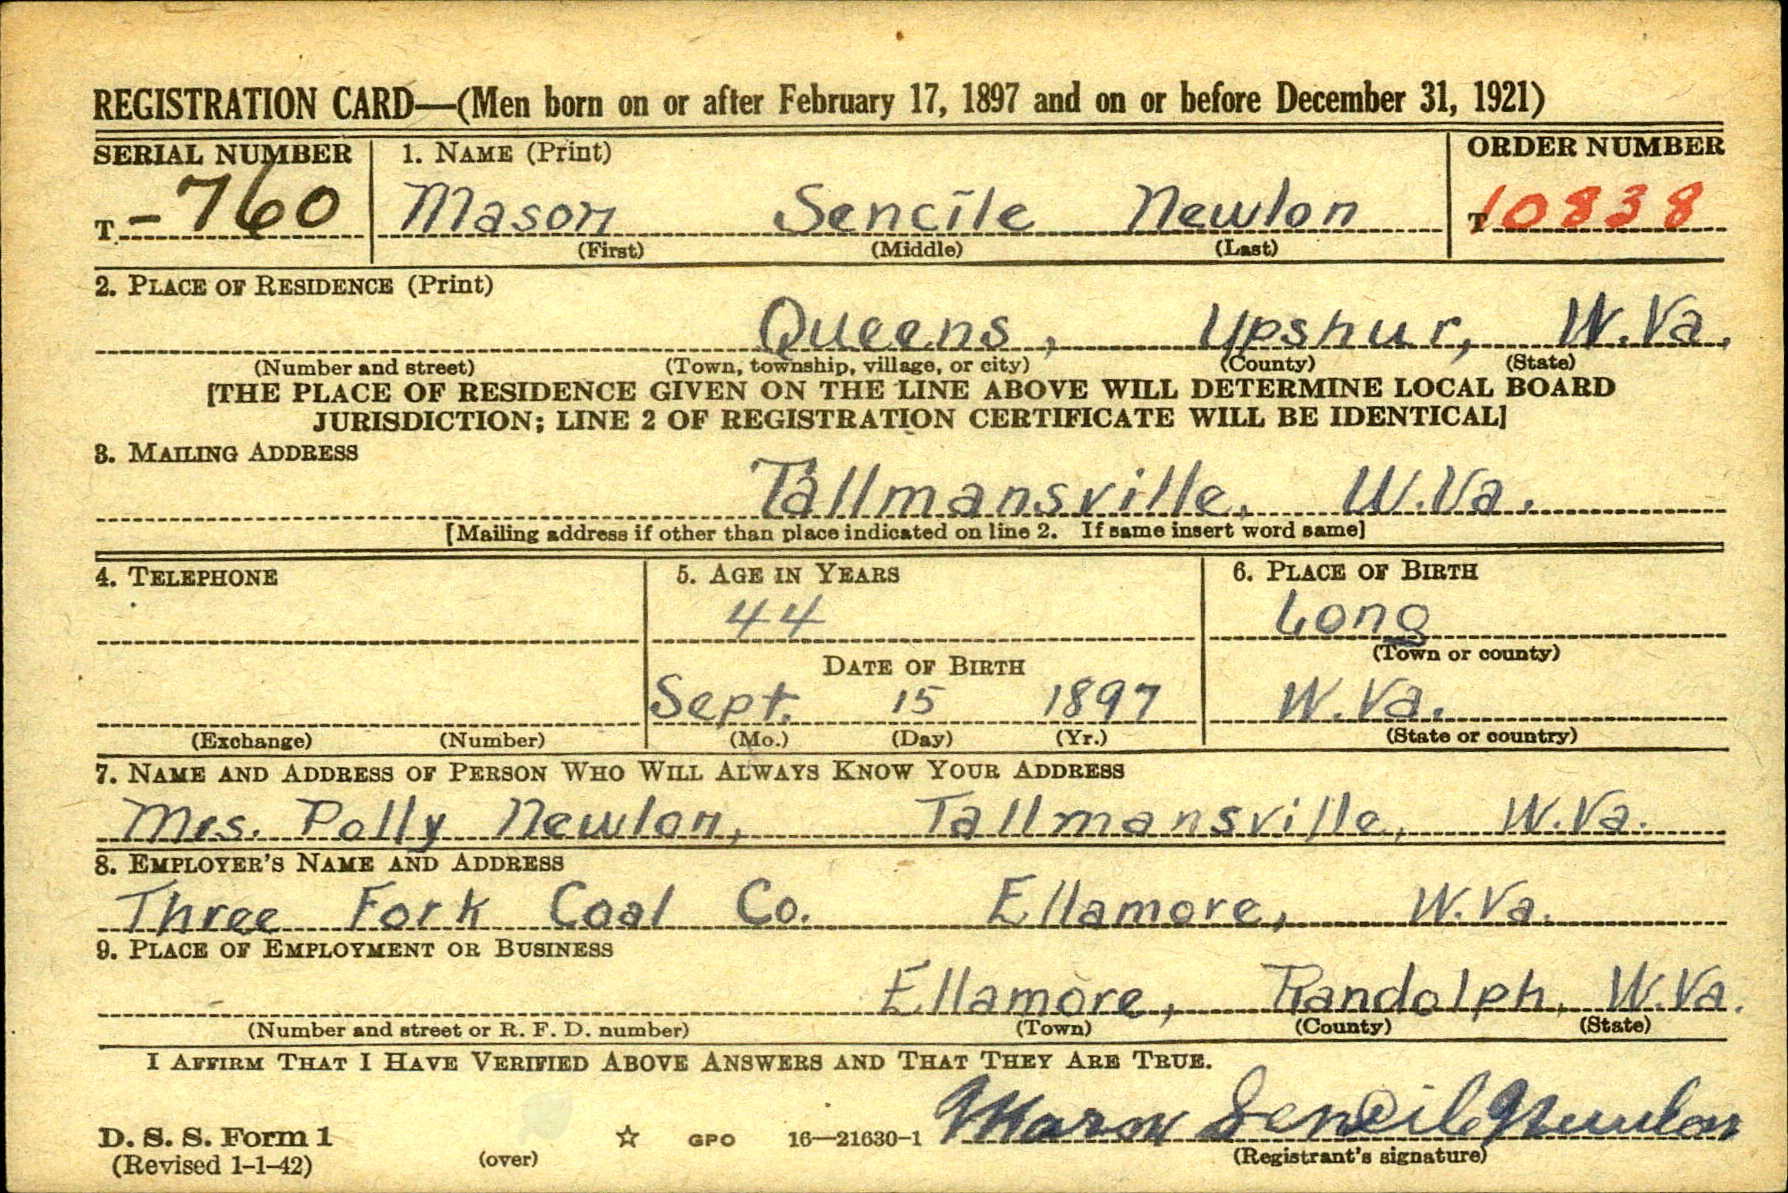 REGISTRATION CARD—(Men born on or after February 17, 1897 and on or before December 31, 1921)
SERIAL NUMBER 1. NAME (Print) ORDER NUMBER
T -760 Mason Sencile Newlon T 10838
(First) (Middle) (Last)
2. PLACE OF RESIDENCE (Print)
Queens, Upshur, W.Va.
(Number and street) (Town, township, village, or city) (County) (State)
[THE PLACE OF RESIDENCE GIVEN ON THE LINE ABOVE WILL DETERMINE LOCAL BOARD
JURISDICTION; LINE 2 OF REGISTRATION CERTIFICATE WILL BE IDENTICAL]
3. MAILING ADDRESS
Tallmansville, W.Va.
[Mailing address if other than place indicated on line 2. If same insert word same]
4. TELEPHONE 5. AGE IN YEARS 6. PLACE OF BIRTH
44 Long
(Town or county)
DATE OF BIRTH
Sept. 15 1897 W.Va.
(Exchange) (Number) (Mo.) (Day) (Yr.) (State or country)
7. NAME AND ADDRESS OF PERSON WHO WILL ALWAYS KNOW YOUR ADDRESS
Mrs. Polly Newlon, Tallmansville, W.Va.
8. EMPLOYER'S NAME AND ADDRESS
Three Fork Coal Co. Ellamore, W.Va.
9. PLACE OF EMPLOYMENT OR BUSINESS
Ellamore, Randolph, W.Va.
(Number and street or R. F. D. number) (Town) (County) (State)
I AFFIRM THAT I HAVE VERIFIED ABOVE ANSWERS AND THAT THEY ARE TRUE.
Mason Sencile Newlon
D. S. S. Form 1 ☆ GPO 16—21630-1
(Revised 1-1-42) (over) (Registrant's signature)